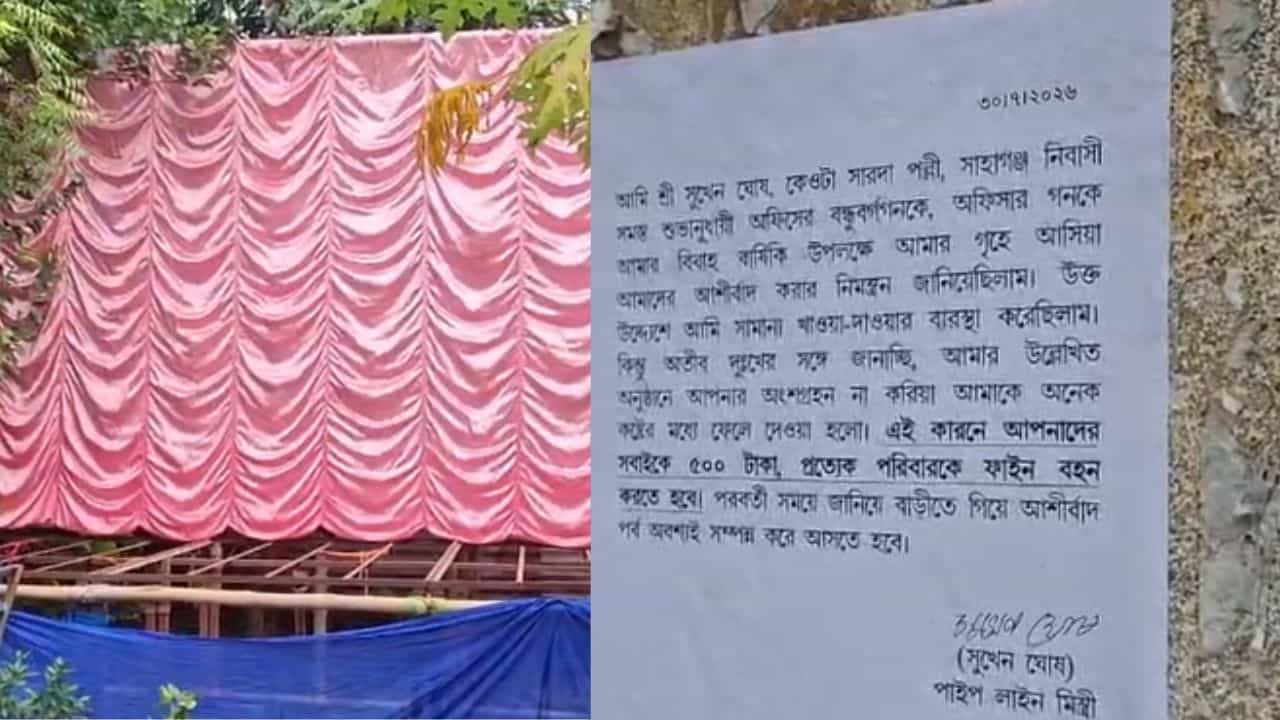 ৩০।৭।২০২৬
আমি শ্রী সুখেন ঘোষ, কেওটা সারদা পল্লী, সাহাগঞ্জ নিবাসী
সমস্ত শুভানুধায়ী অফিসের বন্ধুবর্গগনকে, অফিসার গনকে
আমার বিবাহ বার্ষিকি উপলক্ষে আমার গৃহে আসিয়া
আমাদের আশীর্বাদ করার নিমন্ত্রন জানিয়েছিলাম। উক্ত
উদ্দ্যেশে আমি সামান্য খাওয়া-দাওয়ার ব্যবস্থা করেছিলাম।
কিন্তু অতীব দুঃখের সঙ্গে জানাচ্ছি, আমার উল্লেখিত
অনুষ্ঠানে আপনার অংশগ্রহন না করিয়া আমাকে অনেক
কষ্টের মধ্যে ফেলে দেওয়া হলো। এই কারনে আপনাদের
সবাইকে ৫০০ টাকা, প্রত্যেক পরিবারকে ফাইন বহন
করতে হবে। পরবর্তী সময়ে জানিয়ে বাড়ীতে গিয়ে আশীর্বাদ
পর্ব অবশ্যই সম্পন্ন করে আসতে হবে।
সুখেন ঘোষ
(সুখেন ঘোষ)
পাইপ লাইন মিস্ত্রী